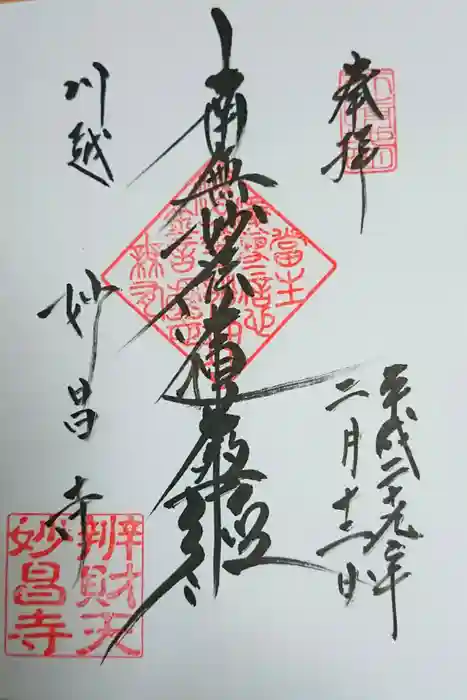 奉拝
平成二十九年
二月十二日
南無妙法蓮華経
川越
妙昌寺
辨財天
妙昌寺